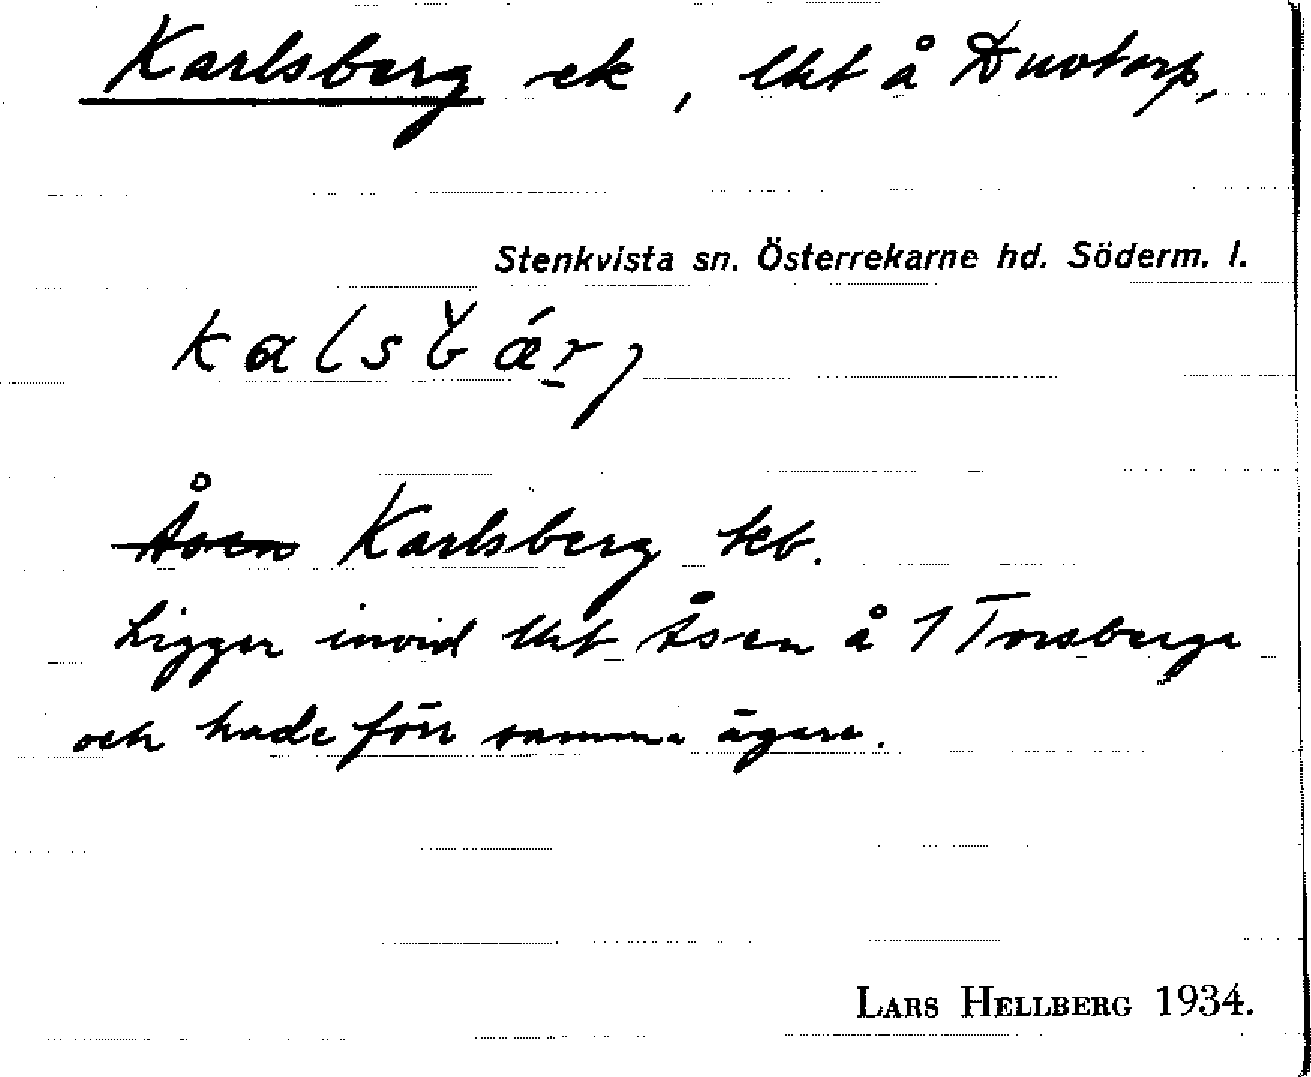 Karlsberg ek, lht å Duvtorp,
Stenkvista sn. Österrekarne hd. Söderm. l.
kalsbǽrj
Åsen Karlsberg kb.
Ligger invid lht Åsen å 1 Torsberga
och hade förr samma ägare.
LARS HELLBERG 1934.